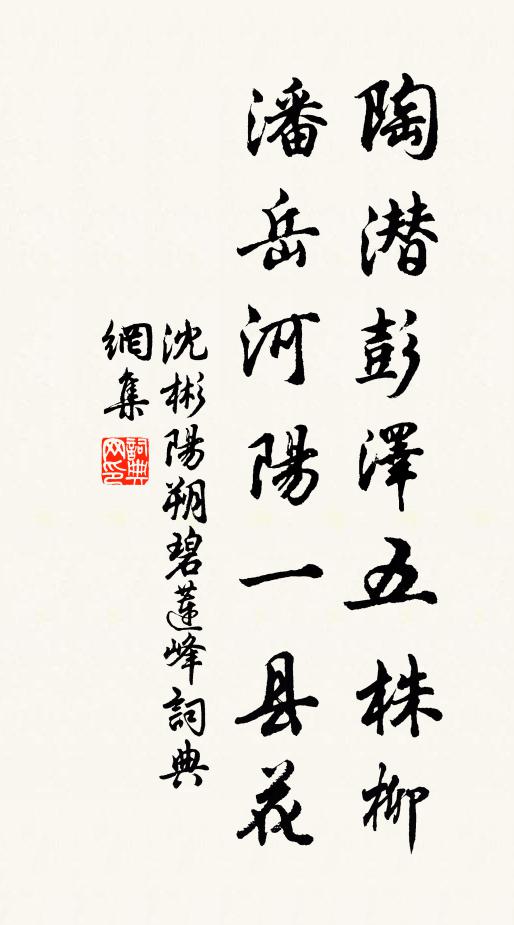 陶潜彭澤五株柳
潘岳河陽一县花
沈彬陽朔碧蓮峰詞典
網集
詞典
网印